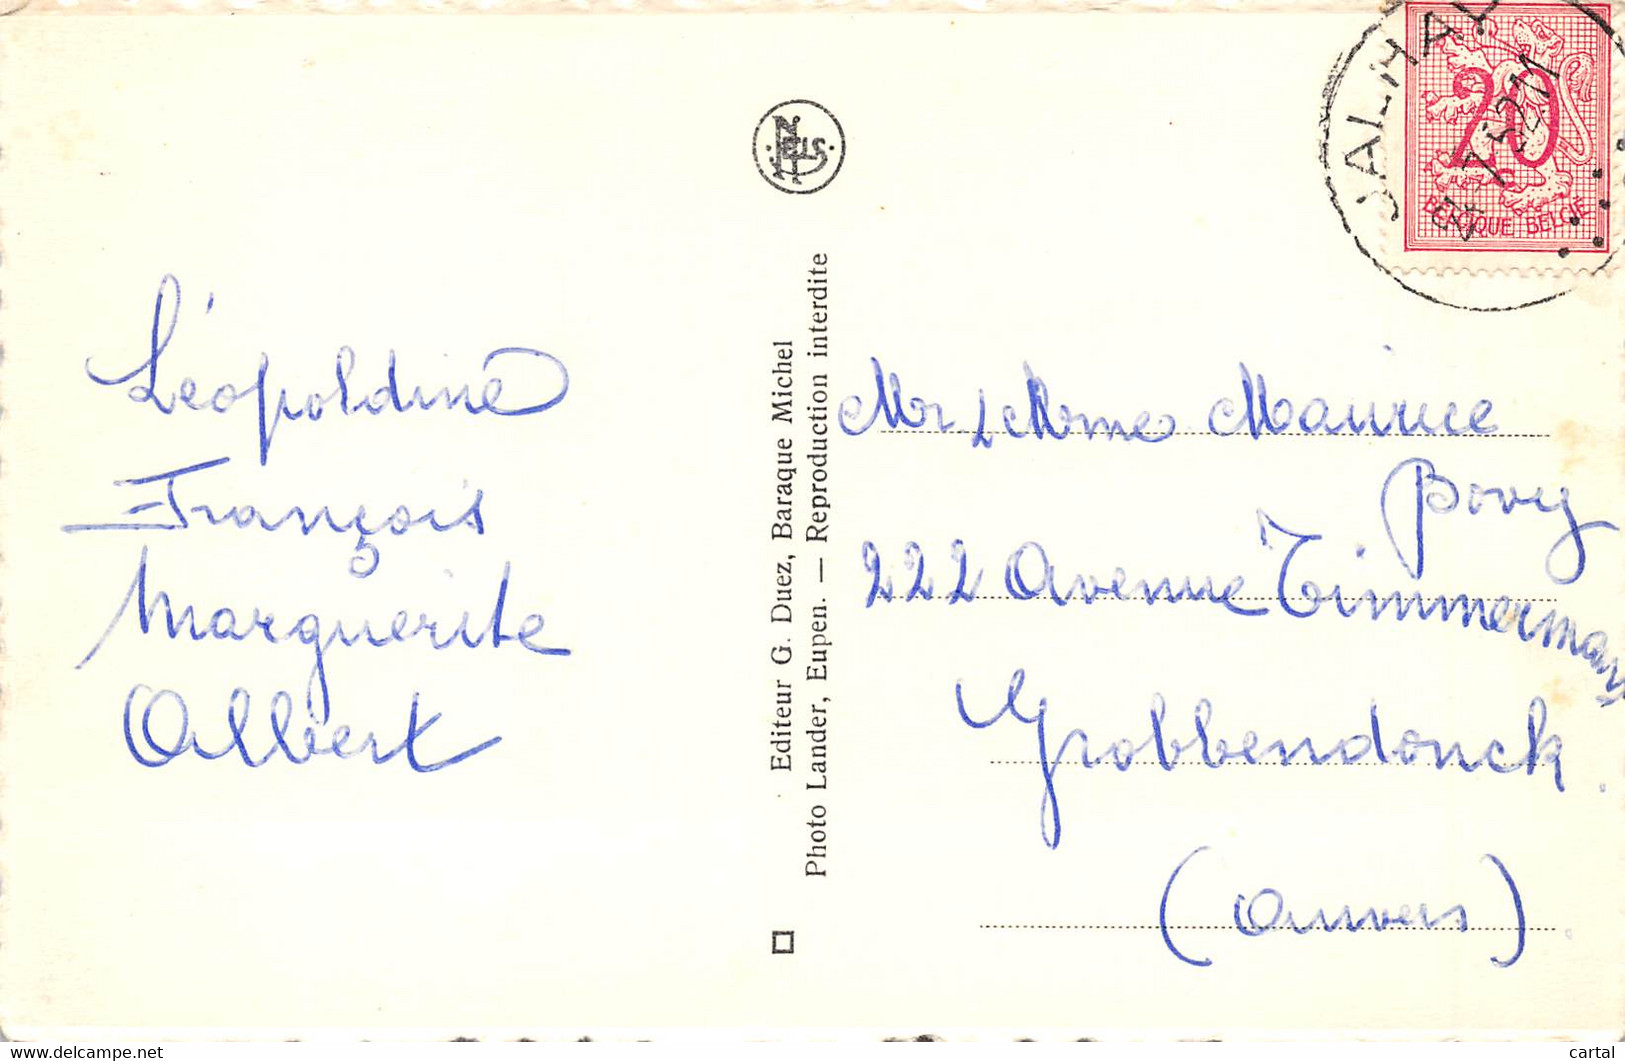 Léopoldine
François
Marguerite
Albert
Nels
Editeur G. Duez, Baraque Michel
Photo Lander, Eupen. — Reproduction interdite
JALHAY
20
BELGIQUE BELGIË
Mr & Mme Maurice
Bovy
222 Avenue Timmermans
Grobbendonck
(Anvers)
www.delcampe.net
cartal